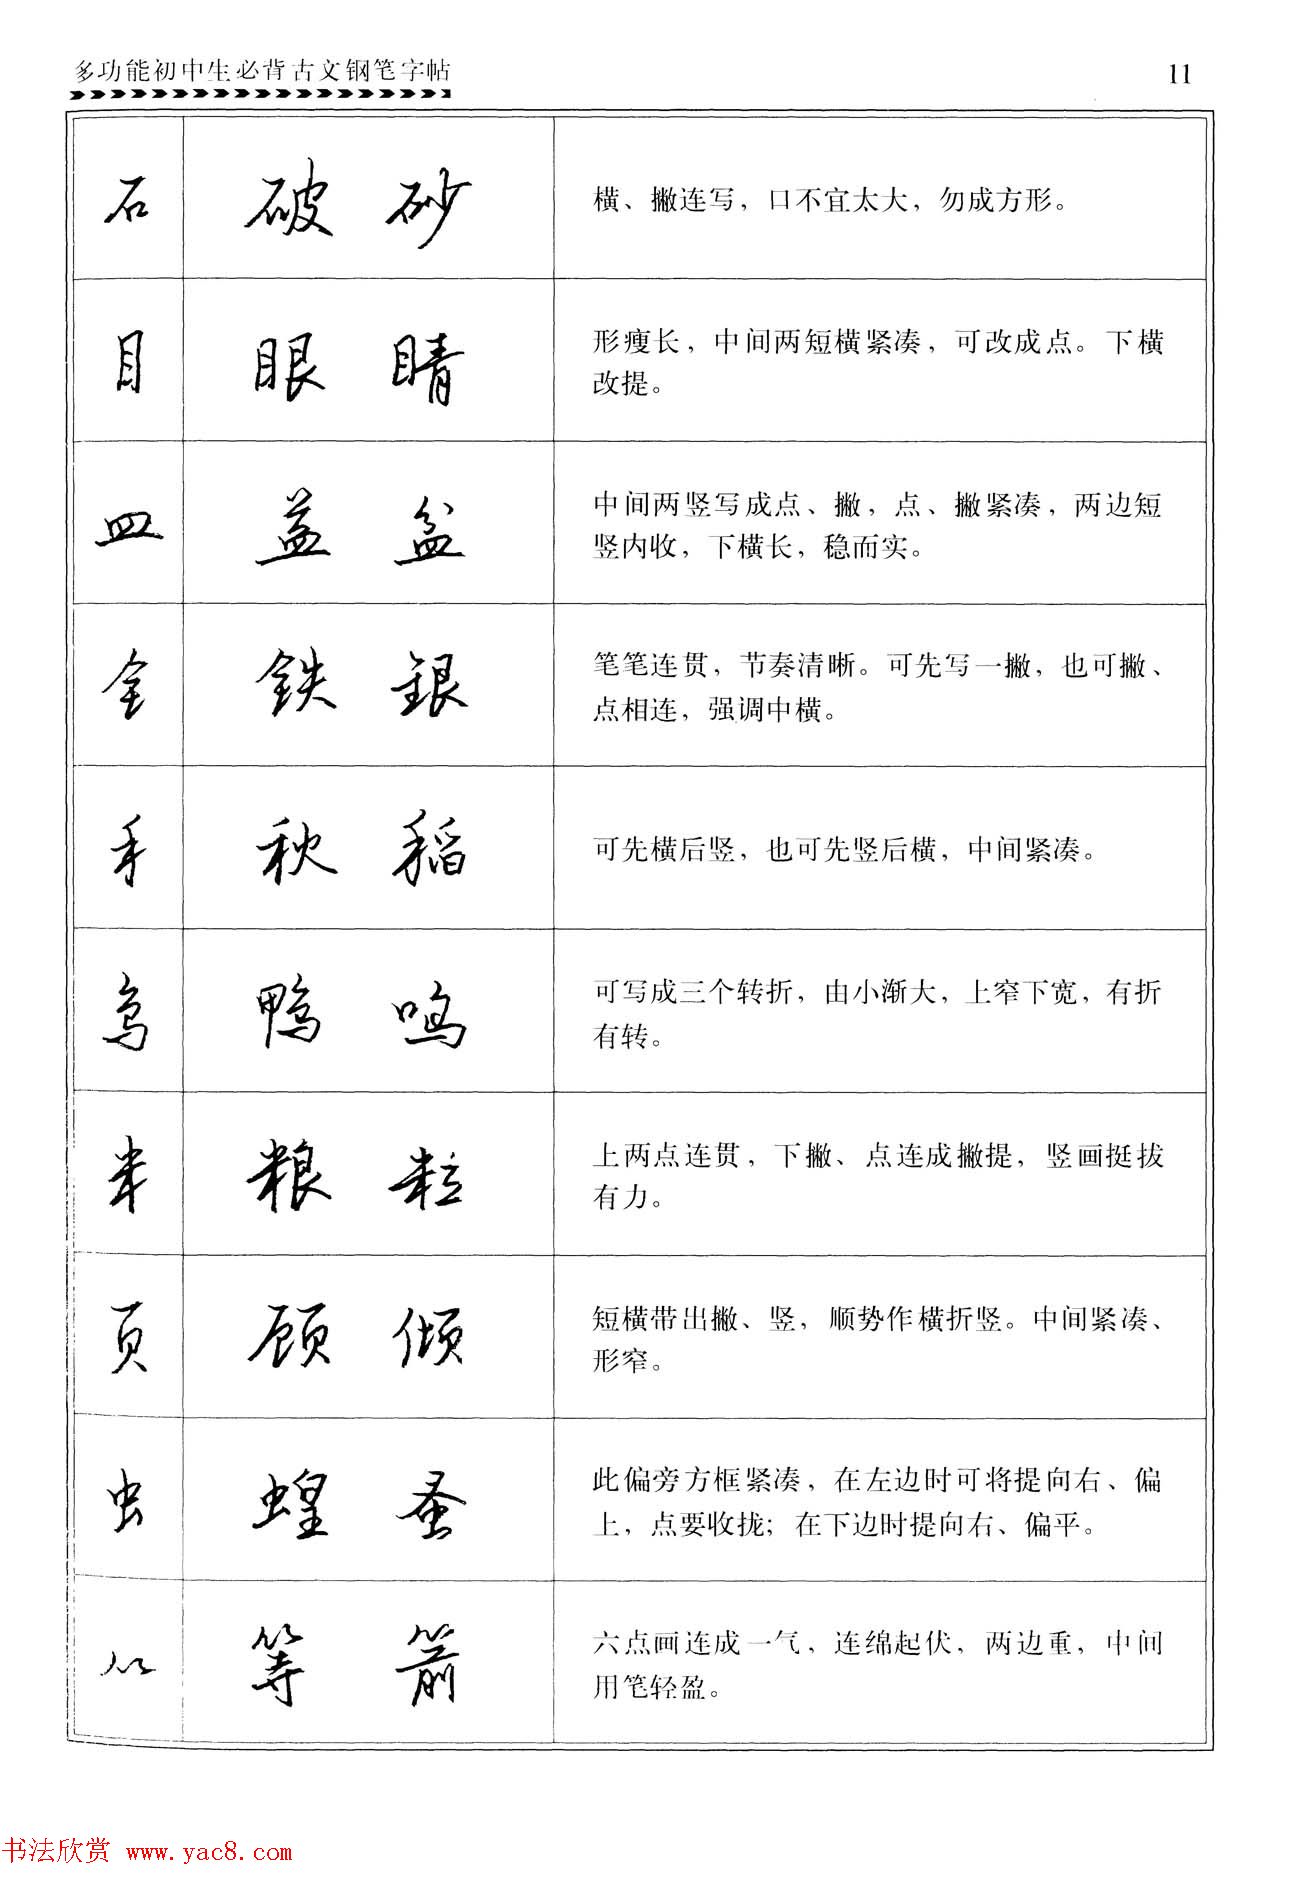 多功能初中生必背古文钢笔字帖
11
石 破 砂 横、撇连写，口不宜太大，勿成方形。
目 眼 睛 形瘦长，中间两短横紧凑，可改成点。下横
改提。
皿 盖 盆 中间两竖写成点、撇，点、撇紧凑，两边短
竖内收，下横长，稳而实。
金 鉄 銀 笔笔连贯，节奏清晰。可先写一撇，也可撇、
点相连，强调中横。
禾 秋 稻 可先横后竖，也可先竖后横，中间紧凑。
鸟 鸭 鸣 可写成三个转折，由小渐大，上窄下宽，有折
有转。
米 粮 粒 上两点连贯，下撇、点连成撇提，竖画挺拔
有力。
页 顾 倾 短横带出撇、竖，顺势作横折竖。中间紧凑、
形窄。
虫 蝗 蚤 此偏旁方框紧凑，在左边时可将提向右、偏
上，点要收拢；在下边时提向右、偏平。
等 箭 六点画连成一气，连绵起伏，两边重，中间
用笔轻盈。
书法欣赏 www.yac8.com